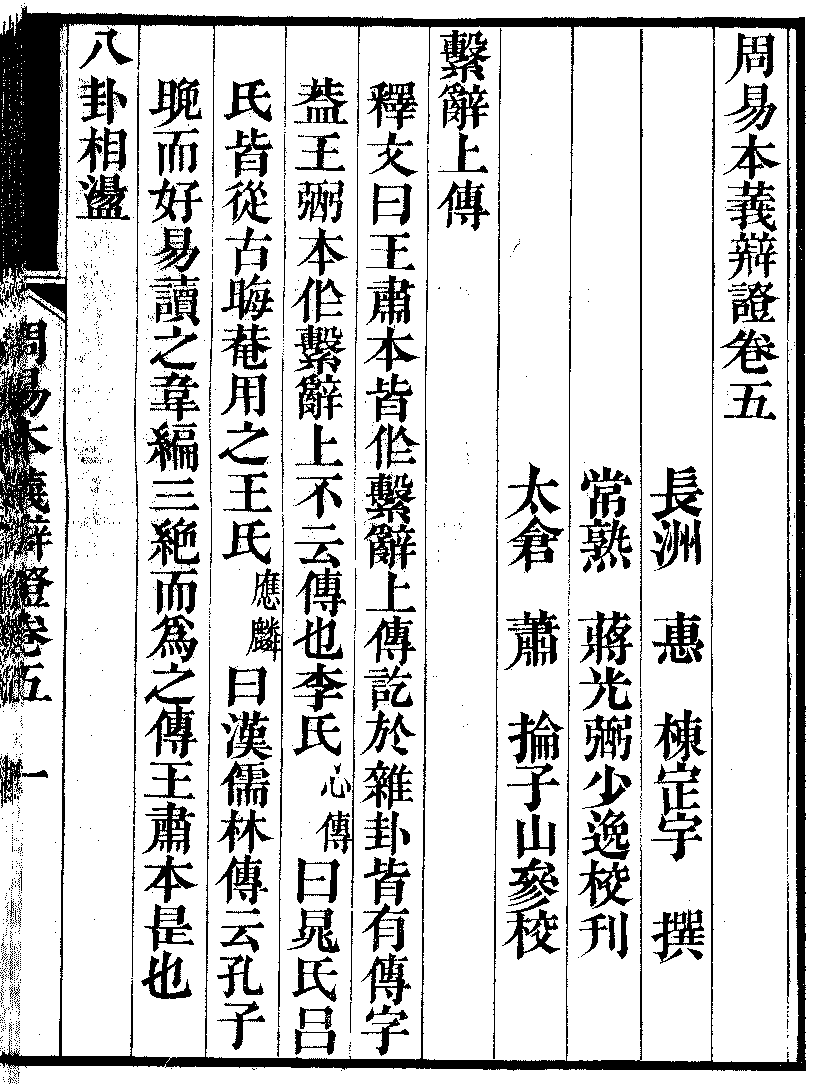 周易本義辯證卷五
長洲　惠　棟定宇　撰
常熟　蔣光弼少逸校刊
太倉　蕭　掄子山參校
繫辭上傳
釋文曰王肅本皆作繫辭上傳訖於雜卦皆有傳字
葢王弼本作繫辭上不云傳也李氏心傳曰晁氏呂
氏皆從古晦菴用之王氏應麟曰漢儒林傳云孔子
晚而好易讀之韋編三絶而爲之傳王肅本是也
八卦相盪
周易本義辯證卷五　一